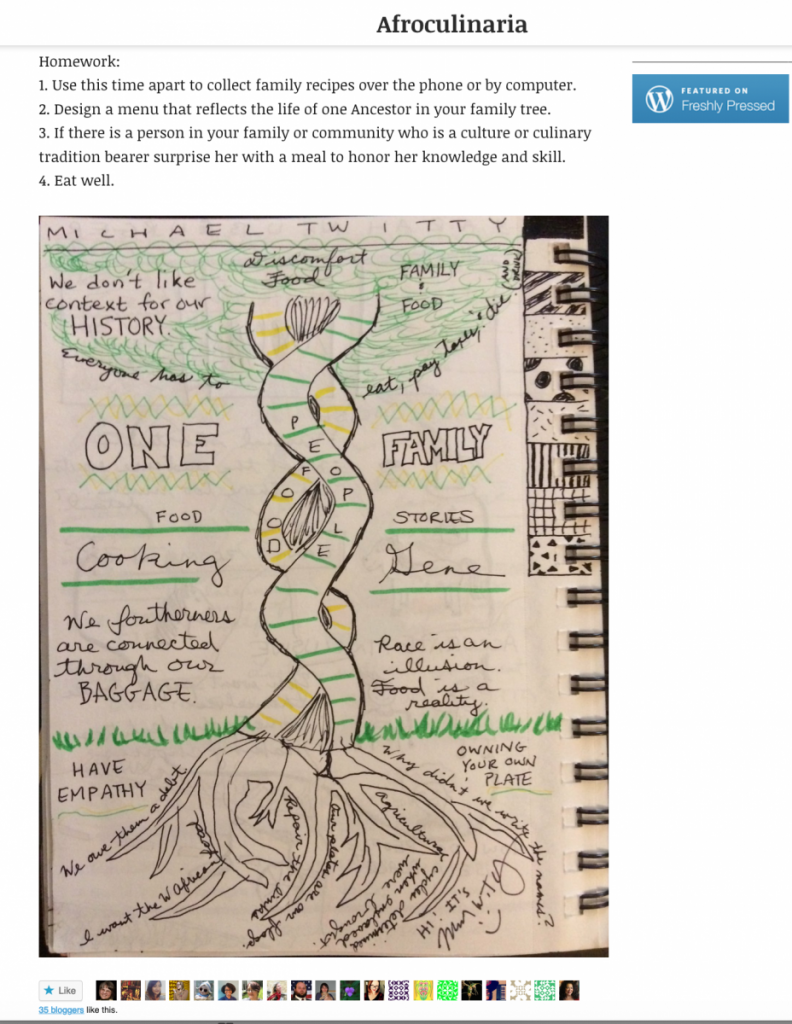 Afroculinaria
Homework:
1. Use this time apart to collect family recipes over the phone or by computer.
2. Design a menu that reflects the life of one Ancestor in your family tree.
3. If there is a person in your family or community who is a culture or culinary
tradition bearer surprise her with a meal to honor her knowledge and skill.
4. Eat well.
FEATURED ON
Freshly Pressed
MICHAEL TWITTY
Discomfort
Food
We don't like
context for our
HISTORY.
FAMILY
&
FOOD
Everyone has to
eat, pay taxes, & die
ONE
FAMILY
PEOPLE
FOOD
FOOD
STORIES
Cooking
Gene
We Southerners
are connected
through our
BAGGAGE.
Race is an
illusion.
Food is a
reality.
HAVE
EMPATHY
OWNING
YOUR OWN
PLATE
We owe them a debt
I want the W African
past
Repair the links
Our plates are our flags.
agricultural
cycles determined
when enslaved
were brought.
Why didn't we write the names?
HI
IT'S
Like
35 bloggers like this.